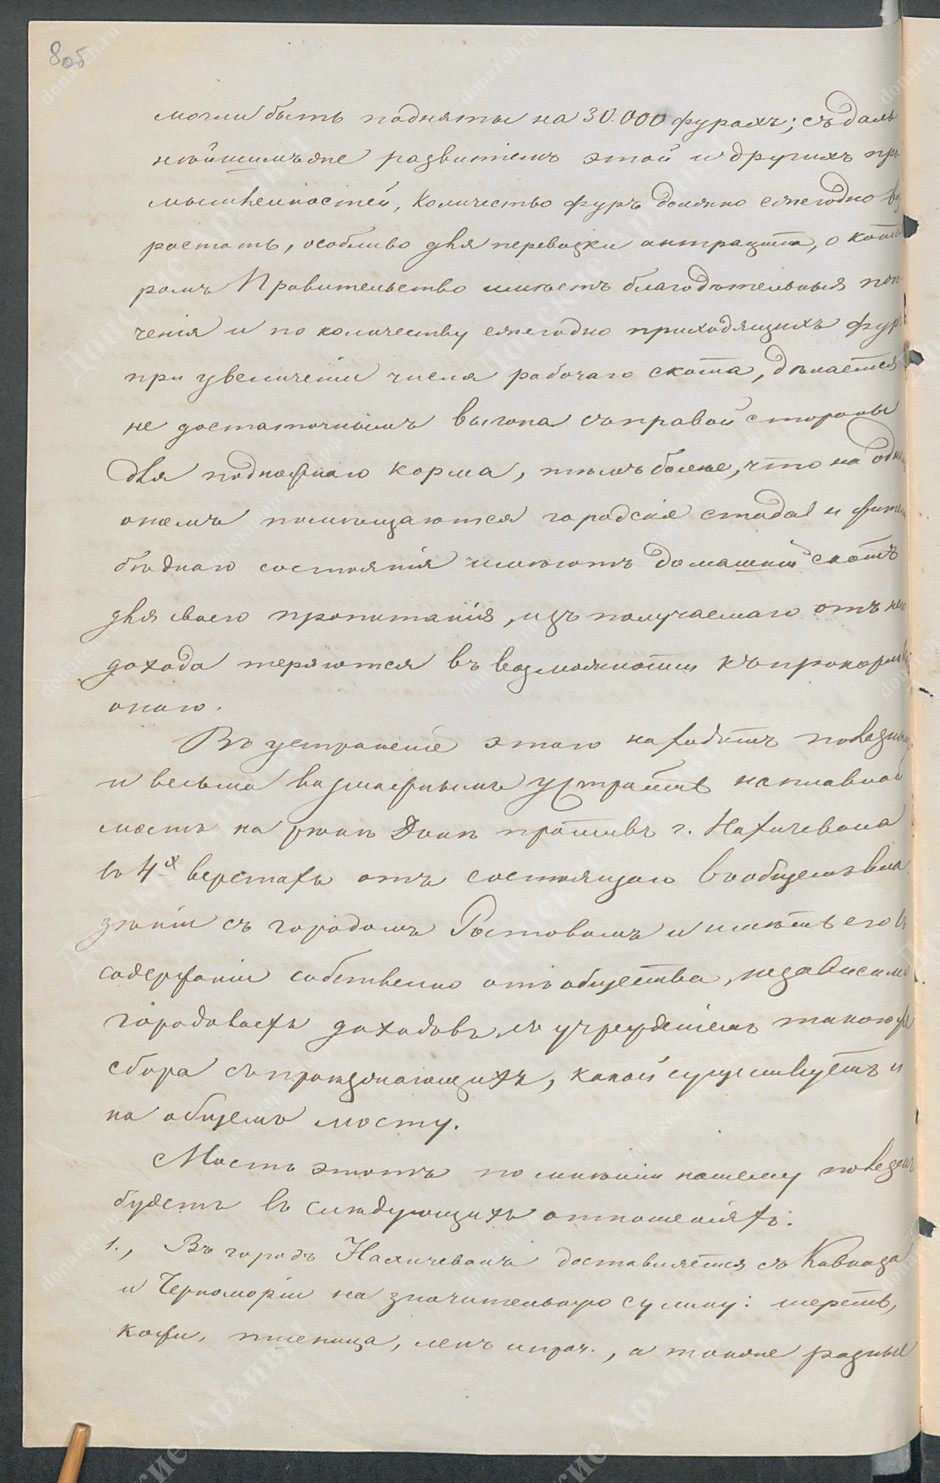 8об
могли быть подняты на 30.000 фурахъ; съ даль
нѣйшимъ же развитіемъ этой и другихъ про
мышленностей, количество фуръ должно ежегодно воз
ростать, особливо для перевозки антрацита, о кото
ромъ Правительство имѣетъ благодѣтельныя попе
ченія и по количеству ежегодно приходящихъ фуръ
при увеличеніи числа рабочаго скота, дѣлается
не достаточнымъ выгона съ правой стороны
для подножнаго корма, тѣмъ болѣе, что на одн
ономъ помѣщаются городскія стада и жители
бѣднаго состоянія имѣютъ домашній скотъ
для своего пропитанія, изъ получаемаго отъ него
дохода теряются въ возможности къ прокорм
онаго.
Въ устраненіе этого находимъ полезнымъ
и весьма возможнымъ устроить наплавной
мостъ на рѣкѣ Донѣ противъ г. Нахичевана
въ 4х верстахъ отъ состоящаго въ общемъ вла
дѣніи съ городомъ Ростовомъ и имѣть его въ
содержаніи собственно отъ общества, независимо
городовыхъ доходовъ, съ учрежденіемъ такого же
сбора съ проѣзжающихъ, какой существуетъ и
на общемъ мосту.
Мостъ этотъ по мнѣнію нашему полезенъ
будетъ въ слѣдующихъ отношеніяхъ:
1., Въ городъ Нахичевань доставляется съ Кавказа
и Черноморіи на значительную сумму: шерсть,
кожи, пшеница, ленъ и проч., а также разные